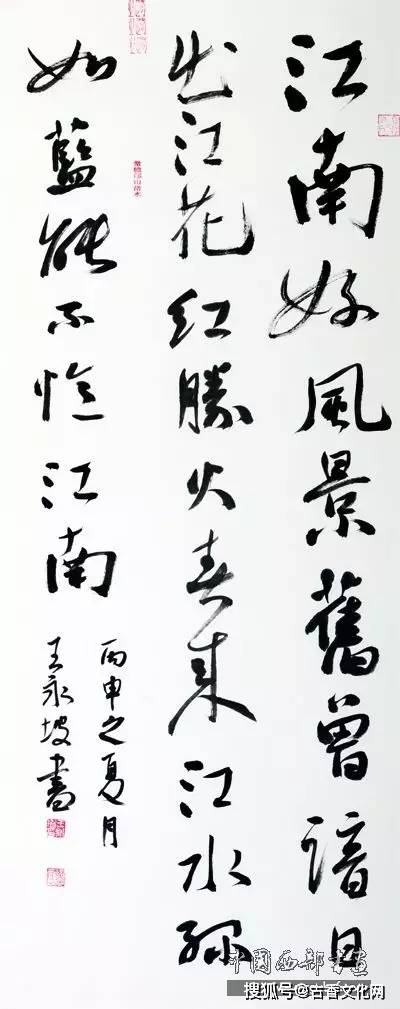 江南好風景舊曾諳日
出江花红勝火春来江水绿
如藍能不憶江南
丙申之夏月
王永坡書
中国西部书画
搜狐号@古香文化网